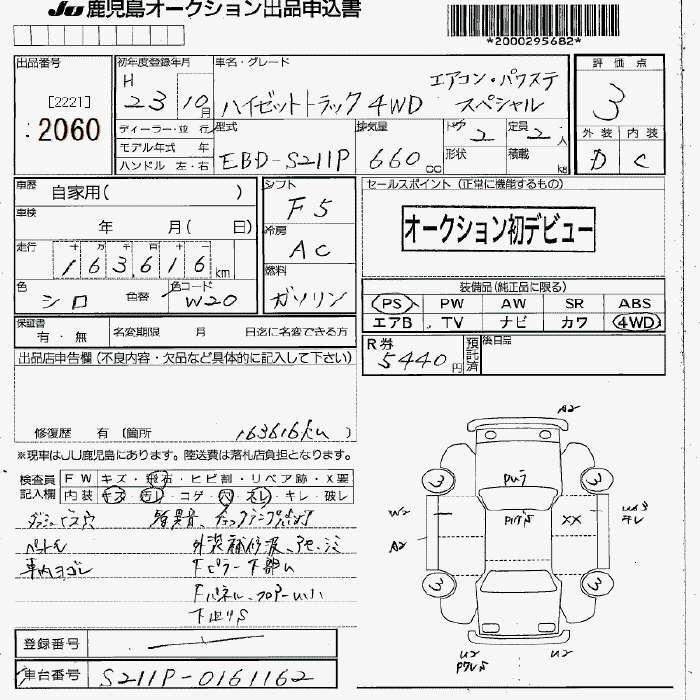 JU 鹿児島オークション出品申込書
*2000295682*
出品番号
[2221]
2060
初年度登録年月
H 23 10月
車名・グレード
エアコン・パワステ
ハイゼットトラック 4WD スペシャル
評価点
3
外装 内装
D C
ディーラー・並行
モデル年式 年
ハンドル 左・右
型式
EBD-S211P
排気量
660 cc
ドア 2
形状
定員 2 人
積載 kg
車歴
自家用( )
車検
年 月( 日)
走行
十 万 千 百 十
163,616 km
色
シロ
色替
色コード
W20
シフト
F5
冷房
AC
燃料
ガソリン
セールスポイント (正常に機能するもの)
オークション初デビュー
装備品(純正品に限る)
PS PW AW SR ABS
エアB TV ナビ カワ 4WD
保証書
有・無
名変期限 月 日迄に名変できる方
R券
5440円
預託済
後日品
出品店申告欄(不良内容・欠品など具体的に記入して下さい)
修復歴 有 (箇所 163616km)
※現車はJU鹿児島にあります。陸送費は落札店負担となります。
検査員記入欄
FW キズ・飛石・ヒビ割・リペア跡・X要
内装 キズ・汚レ・コゲ・穴・スレ・キレ・破レ
車内ヨゴレ
A2
3
3
W2
A2
XX
キレ
3
3
U2
U2
登録番号
車台番号
S211P-0161162